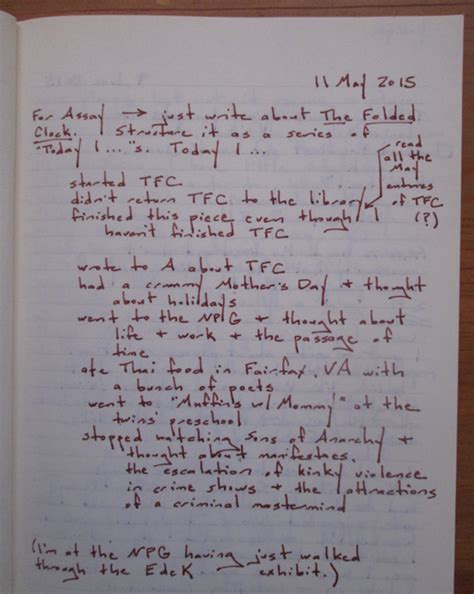 11 May 2015
For Assay → just write about The Folded
Clock. Structure it as a series of
"Today I ..."s. Today I ...
read
all the
May
entries
of TFC
(?)
started TFC
didn't return TFC to the library
finished this piece even though I
haven't finished TFC
wrote to A about TFC
had a crummy Mother's Day + thought
about holidays
went to the NPG + thought about
life + work + the passage of
time
ate Thai food in Fairfax, VA with
a bunch of poets
went to "Muffins w/ Mommy" at the
twins' preschool
stopped watching Sons of Anarchy +
thought about manifestoes,
the escalation of kinky violence
in crime shows + the attractions
of a criminal mastermind
(I'm at the NPG having just walked
through the exhibit.)